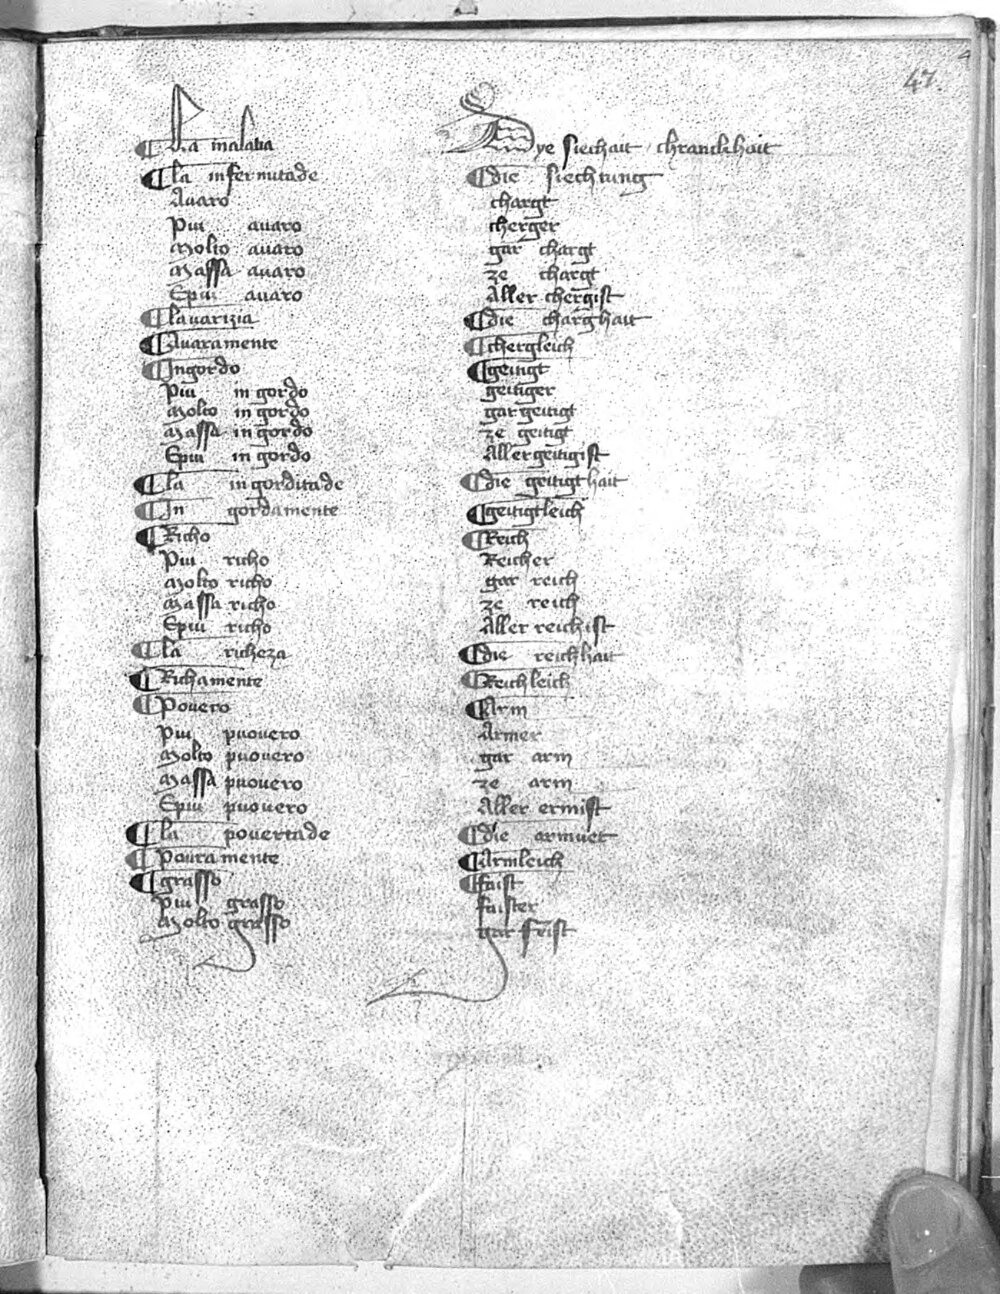 47.
La malatia
La infermitade
Avaro
Piu avaro
Molto avaro
Massa avaro
Epiu avaro
Lavarizia
Avaramente
Ingordo
Piu in gordo
Molto in gordo
Massa in gordo
Epiu in gordo
La in gorditade
In gordamente
Richo
Piu richo
Molto richo
Massa richo
Epiu richo
La richeza
Richamente
Povero
Piu puovero
Molto puovero
Massa puovero
Epiu puovero
La povertade
Povramente
grasso
Piu grasso
Molto grasso
Dye siechait chranckhait
die siechtung
chargt
cherger
gar chargt
ze chargt
Aller chergist
die charghait
chergleich
geitigt
geitiger
gar geitigt
ze geitigt
Aller geitigist
die geitigthait
geitigtleich
Reich
Reicher
gar reich
ze reich
Aller reichist
die reichhait
Reichleich
Arm
Armer
gar arm
ze arm
Aller ermist
die armuet
Armleich
faist
faister
gar feist